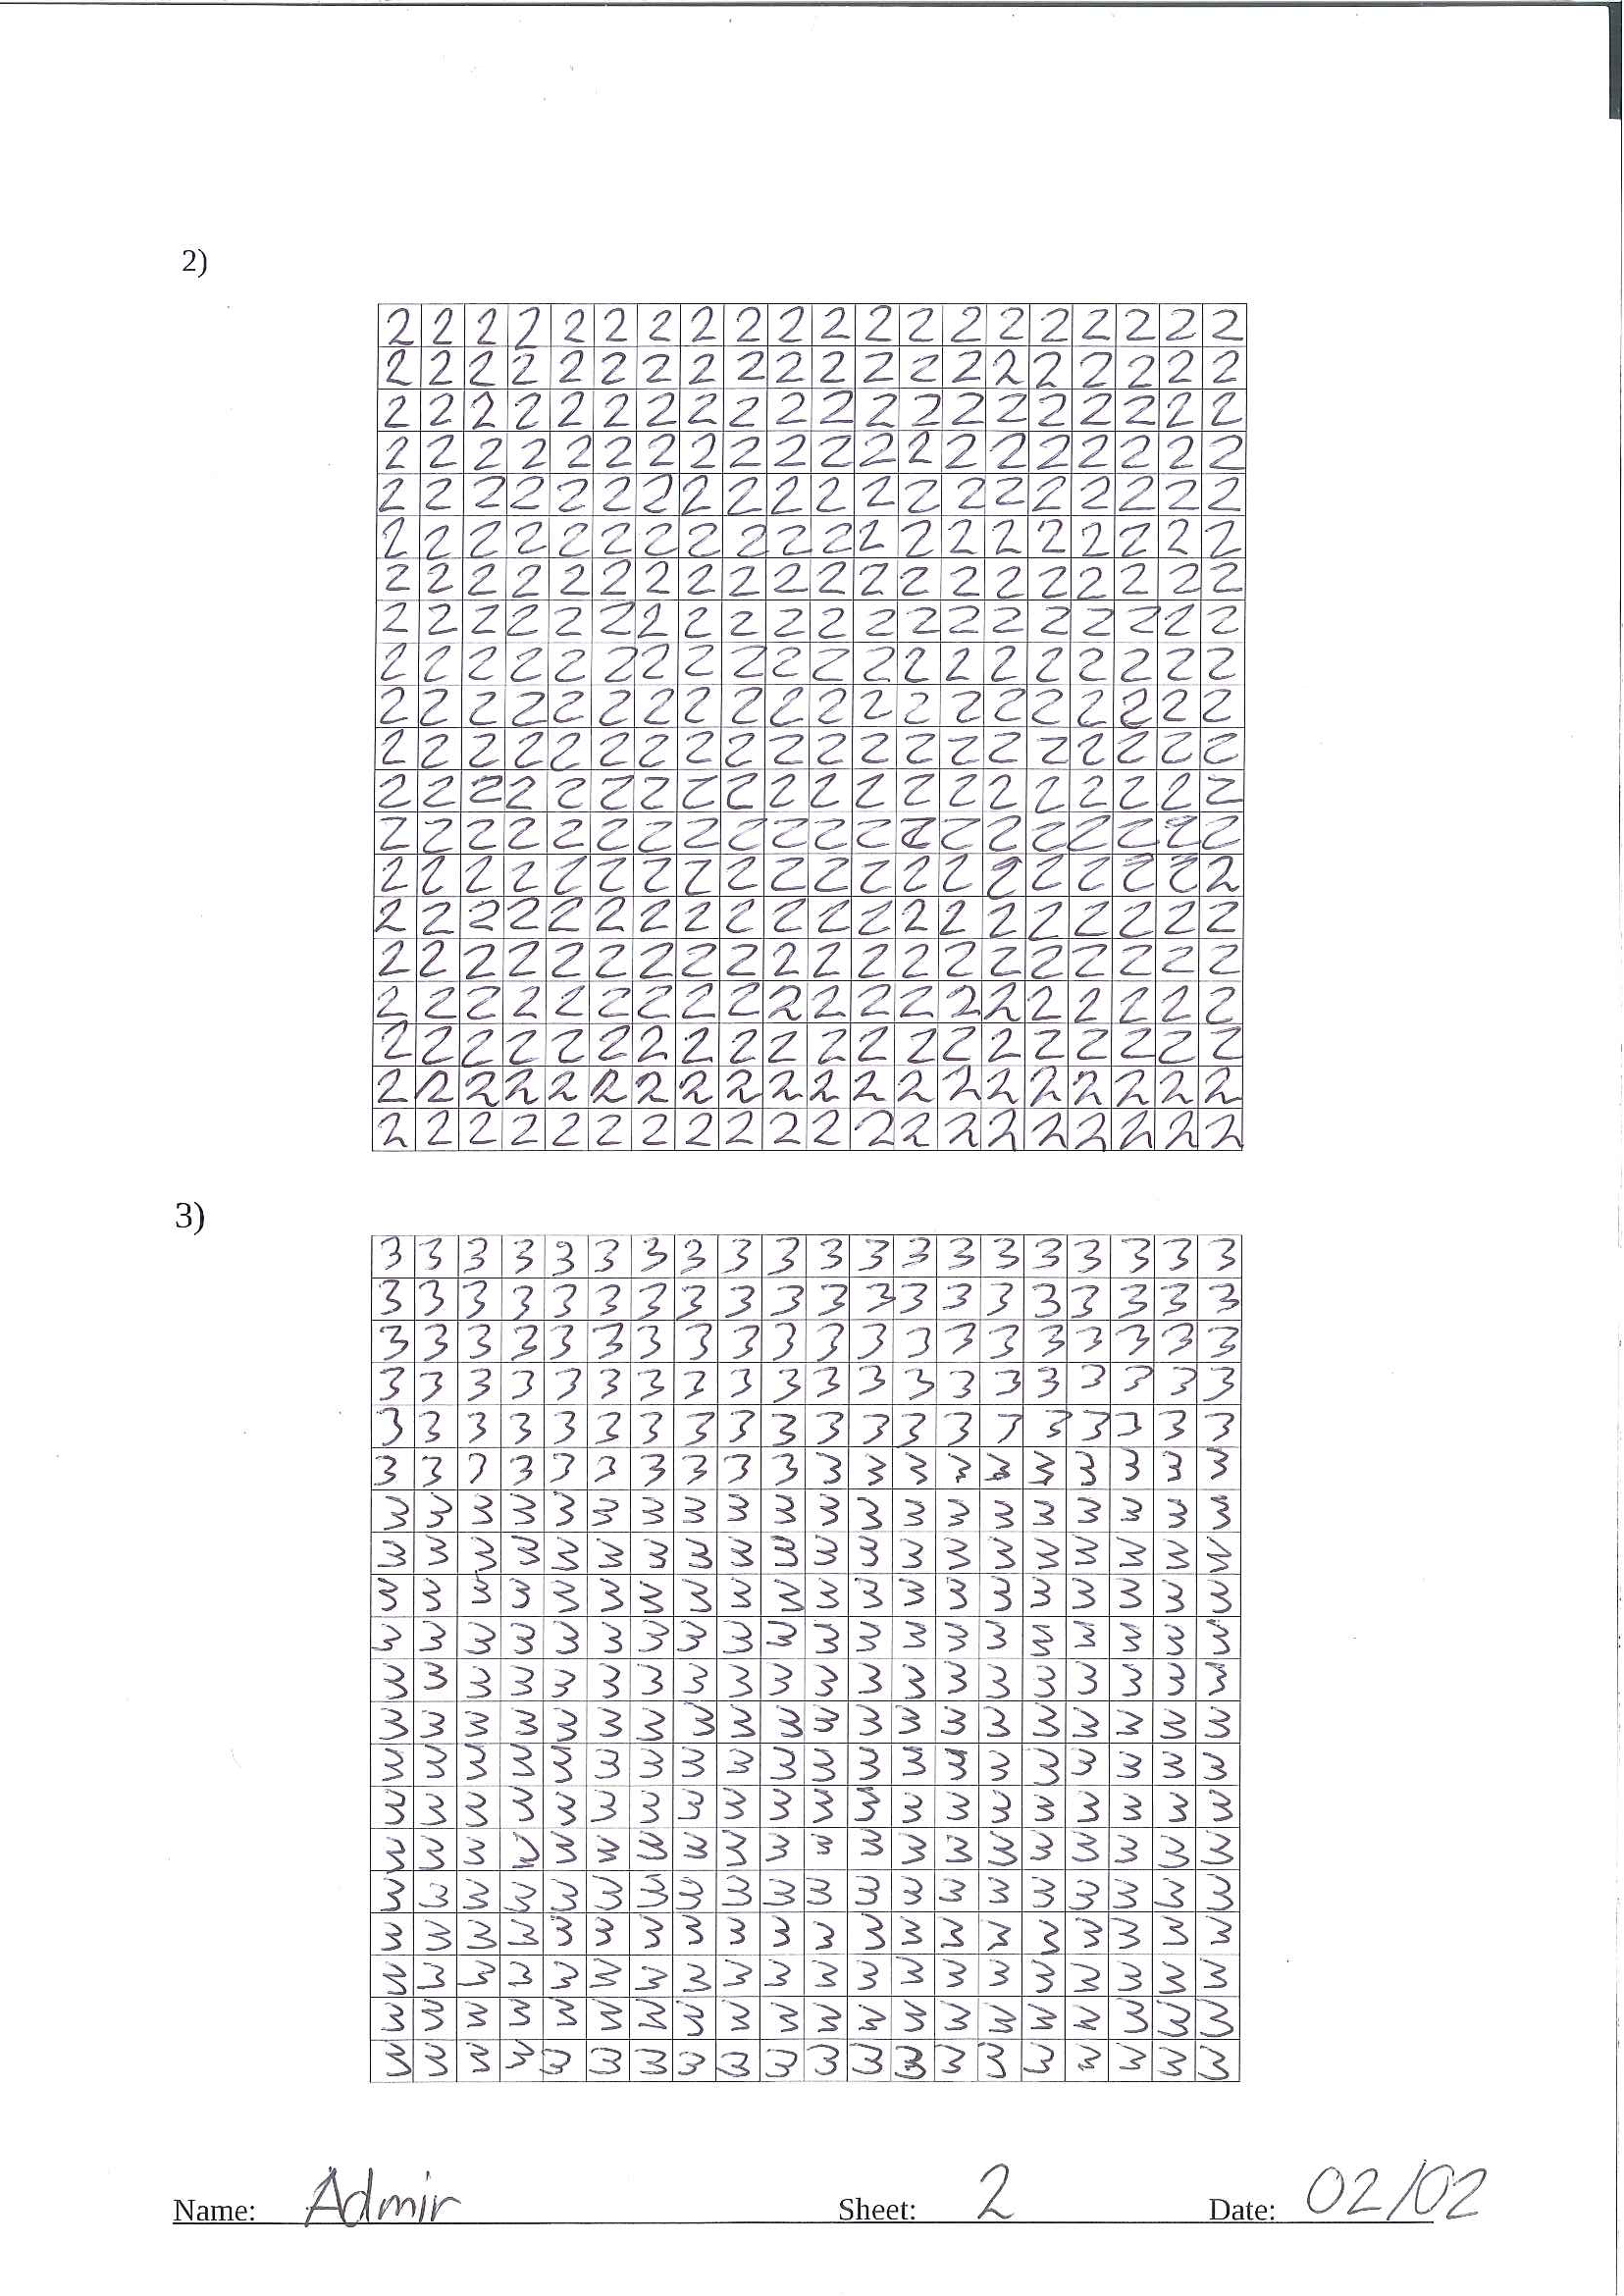 2)
2 2 2 2 2 2 2 2 2 2 2 2 2 2 2 2 2 2 2 2
2 2 2 2 2 2 2 2 2 2 2 2 2 2 2 2 2 2 2 2
2 2 2 2 2 2 2 2 2 2 2 2 2 2 2 2 2 2 2 2
2 2 2 2 2 2 2 2 2 2 2 2 2 2 2 2 2 2 2 2
2 2 2 2 2 2 2 2 2 2 2 2 2 2 2 2 2 2 2 2
2 2 2 2 2 2 2 2 2 2 2 2 2 2 2 2 2 2 2 2
2 2 2 2 2 2 2 2 2 2 2 2 2 2 2 2 2 2 2 2
2 2 2 2 2 2 2 2 2 2 2 2 2 2 2 2 2 2 2 2
2 2 2 2 2 2 2 2 2 2 2 2 2 2 2 2 2 2 2 2
2 2 2 2 2 2 2 2 2 2 2 2 2 2 2 2 2 2 2 2
2 2 2 2 2 2 2 2 2 2 2 2 2 2 2 2 2 2 2 2
2 2 2 2 2 2 2 2 2 2 2 2 2 2 2 2 2 2 2 2
2 2 2 2 2 2 2 2 2 2 2 2 2 2 2 2 2 2 2 2
2 2 2 2 2 2 2 2 2 2 2 2 2 2 2 2 2 2 2 2
2 2 2 2 2 2 2 2 2 2 2 2 2 2 2 2 2 2 2 2
2 2 2 2 2 2 2 2 2 2 2 2 2 2 2 2 2 2 2 2
2 2 2 2 2 2 2 2 2 2 2 2 2 2 2 2 2 2 2 2
2 2 2 2 2 2 2 2 2 2 2 2 2 2 2 2 2 2 2 2
2 2 2 2 2 2 2 2 2 2 2 2 2 2 2 2 2 2 2 2
2 2 2 2 2 2 2 2 2 2 2 2 2 2 2 2 2 2 2 2
3)
3 3 3 3 3 3 3 3 3 3 3 3 3 3 3 3 3 3 3 3
3 3 3 3 3 3 3 3 3 3 3 3 3 3 3 3 3 3 3 3
3 3 3 3 3 3 3 3 3 3 3 3 3 3 3 3 3 3 3 3
3 3 3 3 3 3 3 3 3 3 3 3 3 3 3 3 3 3 3 3
3 3 3 3 3 3 3 3 3 3 3 3 3 3 3 3 3 3 3 3
3 3 3 3 3 3 3 3 3 3 3 3 3 3 3 3 3 3 3 3
3 3 3 3 3 3 3 3 3 3 3 3 3 3 3 3 3 3 3 3
3 3 3 3 3 3 3 3 3 3 3 3 3 3 3 3 3 3 3 3
3 3 3 3 3 3 3 3 3 3 3 3 3 3 3 3 3 3 3 3
3 3 3 3 3 3 3 3 3 3 3 3 3 3 3 3 3 3 3 3
3 3 3 3 3 3 3 3 3 3 3 3 3 3 3 3 3 3 3 3
3 3 3 3 3 3 3 3 3 3 3 3 3 3 3 3 3 3 3 3
3 3 3 3 3 3 3 3 3 3 3 3 3 3 3 3 3 3 3 3
3 3 3 3 3 3 3 3 3 3 3 3 3 3 3 3 3 3 3 3
3 3 3 3 3 3 3 3 3 3 3 3 3 3 3 3 3 3 3 3
3 3 3 3 3 3 3 3 3 3 3 3 3 3 3 3 3 3 3 3
3 3 3 3 3 3 3 3 3 3 3 3 3 3 3 3 3 3 3 3
3 3 3 3 3 3 3 3 3 3 3 3 3 3 3 3 3 3 3 3
3 3 3 3 3 3 3 3 3 3 3 3 3 3 3 3 3 3 3 3
3 3 3 3 3 3 3 3 3 3 3 3 3 3 3 3 3 3 3 3
Name: Admir Sheet: 2 Date: 02/02